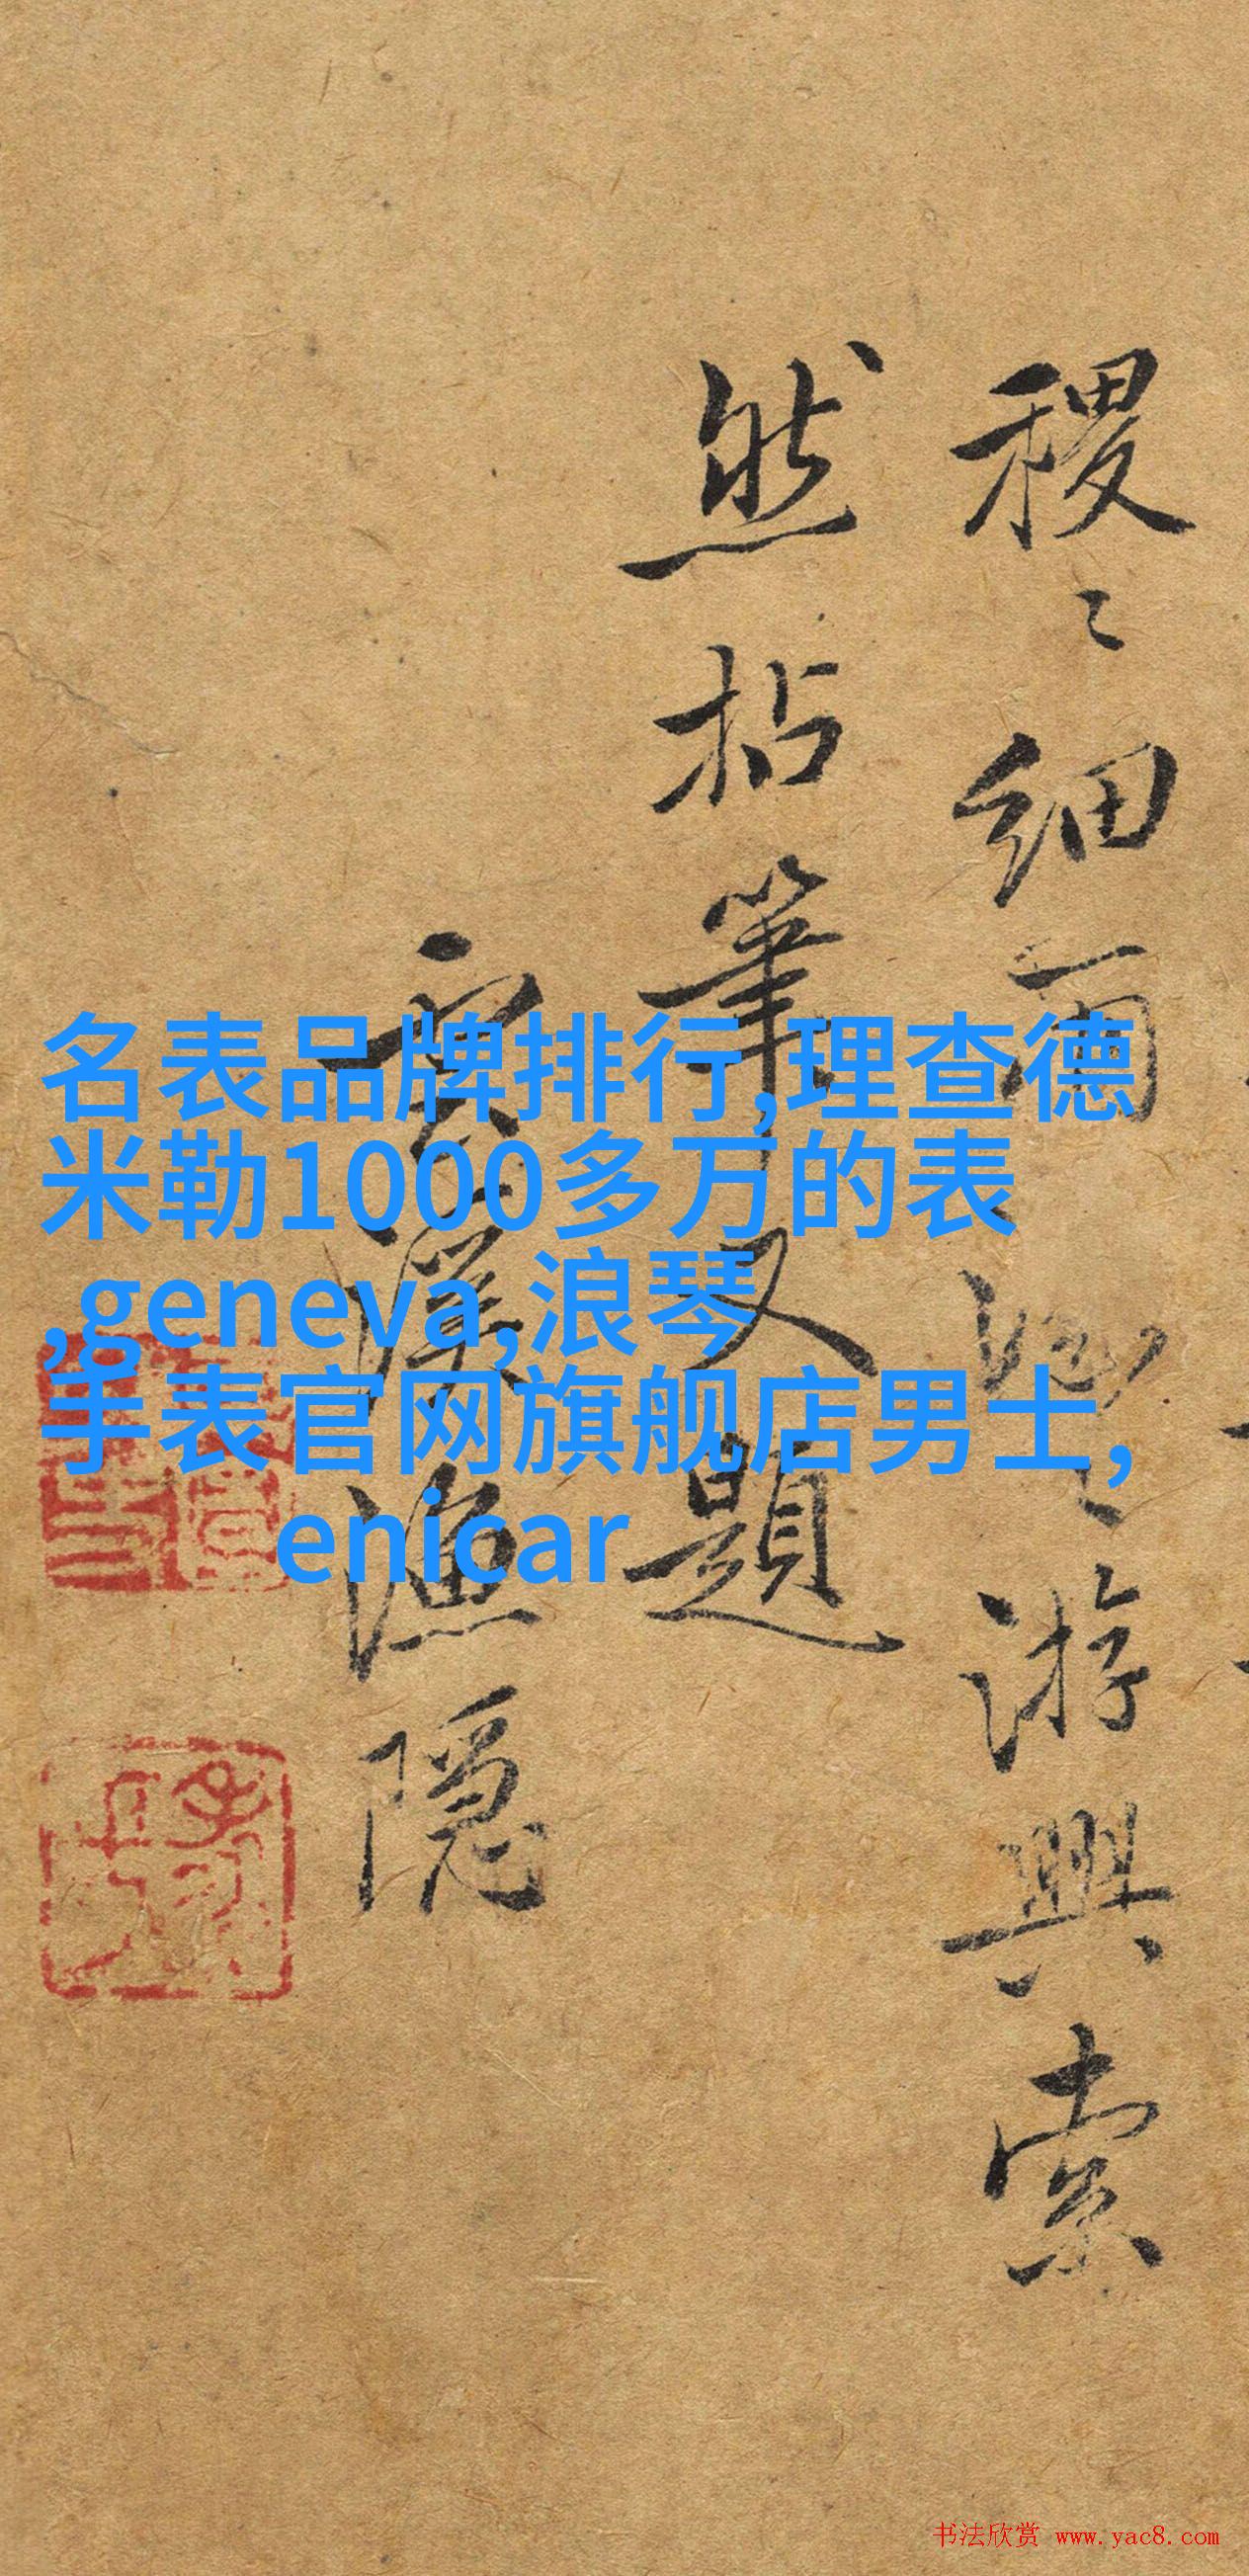 稷〻細雨游興索
然拈筆又題
雲溪漁隱
名表品牌排行,理查德
米勒1000多万的表
,geneva,浪琴
手表官网旗舰店男士,
enicar
书法欣赏 www.yac8.com